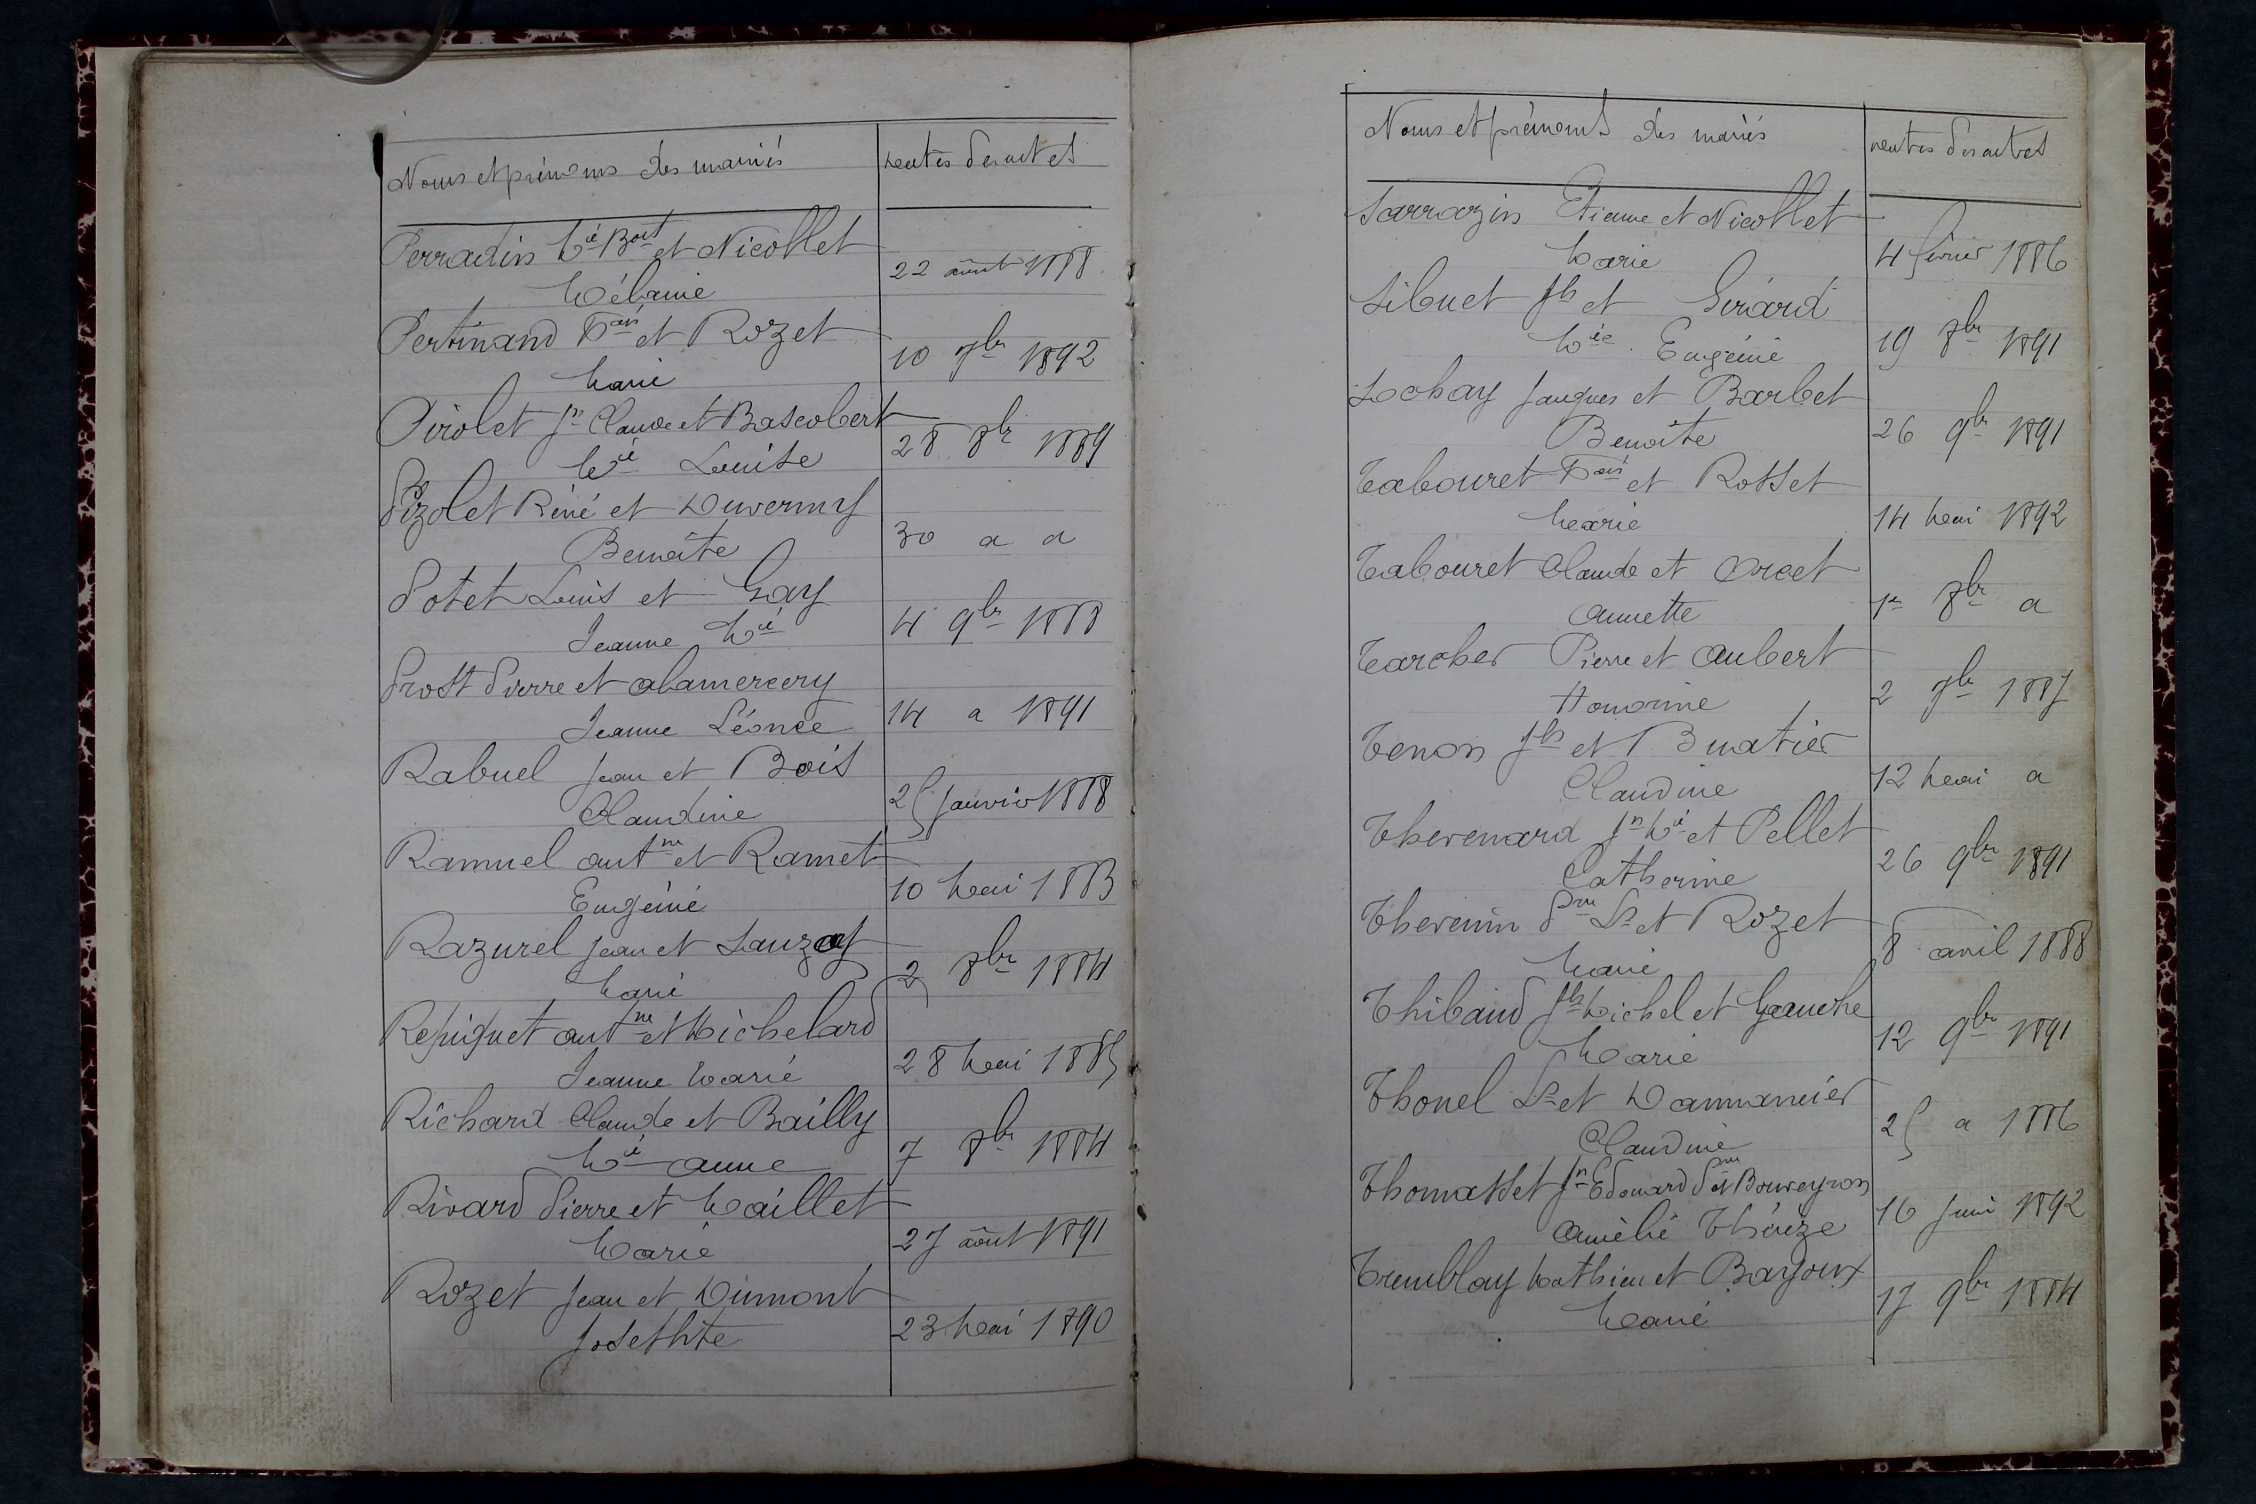 Noms et prénoms des mariés
dates des actes
Perradin Mie Boit et Nicollet
Mélanie
22 août 1888
Pertinand Fçois et Rozet
Marie
10 7bre 1892
Pirolet Jn Claude et Bascobert
Mie Louise
28 8bre 1889
Pizolet Réné et Duvernay
Benoîte
30 a a
Potet Louis et Gay
Jeanne Mie
4 9bre 1888
Prost Pierre et Alamercery
Jeanne Léonce
14 a 1891
Rabuel Jean et Bois
Claudine
25 janvier 1888
Ramuel Antne et Ramet
Eugénie
10 Mai 1883
Razurel Jean et Lauzay
Marie
2 8bre 1884
Repiquet Antne et Michelard
Jeanne Marie
28 Mai 1885
Richard Claude et Bailly
Mie Anne
7 8bre 1884
Rivard Pierre et Maillet
Marie
27 août 1891
Rozet Jean et Dumont
Josephte
23 Mai 1890
Noms et prénoms des mariés
dates des actes
Sarrazin Etienne et Nicollet
Marie
4 février 1886
Sibuet Jh et Girard
Mie Eugénie
19 8bre 1891
Sochay Jacques et Barbet
Benoîte
26 9bre 1891
Tabouret Fçois et Rosset
Marie
14 Mai 1892
Tabouret Claude et Orcet
Annette
1er 8bre a
Tarcher Pierre et Aubert
Honorine
2 7bre 1887
Tenon Jh et Buatier
Claudine
12 Mai a
Thevenard Jn Mie et Pellet
Catherine
26 9bre 1891
Thevenin Prre Ls et Rozet
Marie
8 avril 1888
Thibaud Jh Michel et Gauche
Marie
12 9bre 1891
Thonel Ls et Dannancier
Claudine
25 a 1886
Thomasset Jn Edouard Prre et Bouveyron
Amélie Thérèze
16 Juin 1892
Tremblay Mathieu et Bajoux
Marie
17 9bre 1884